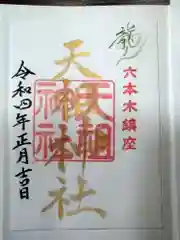 龍
六本木鎮座
天祖神社
天祖
神社
令和四年正月吉日